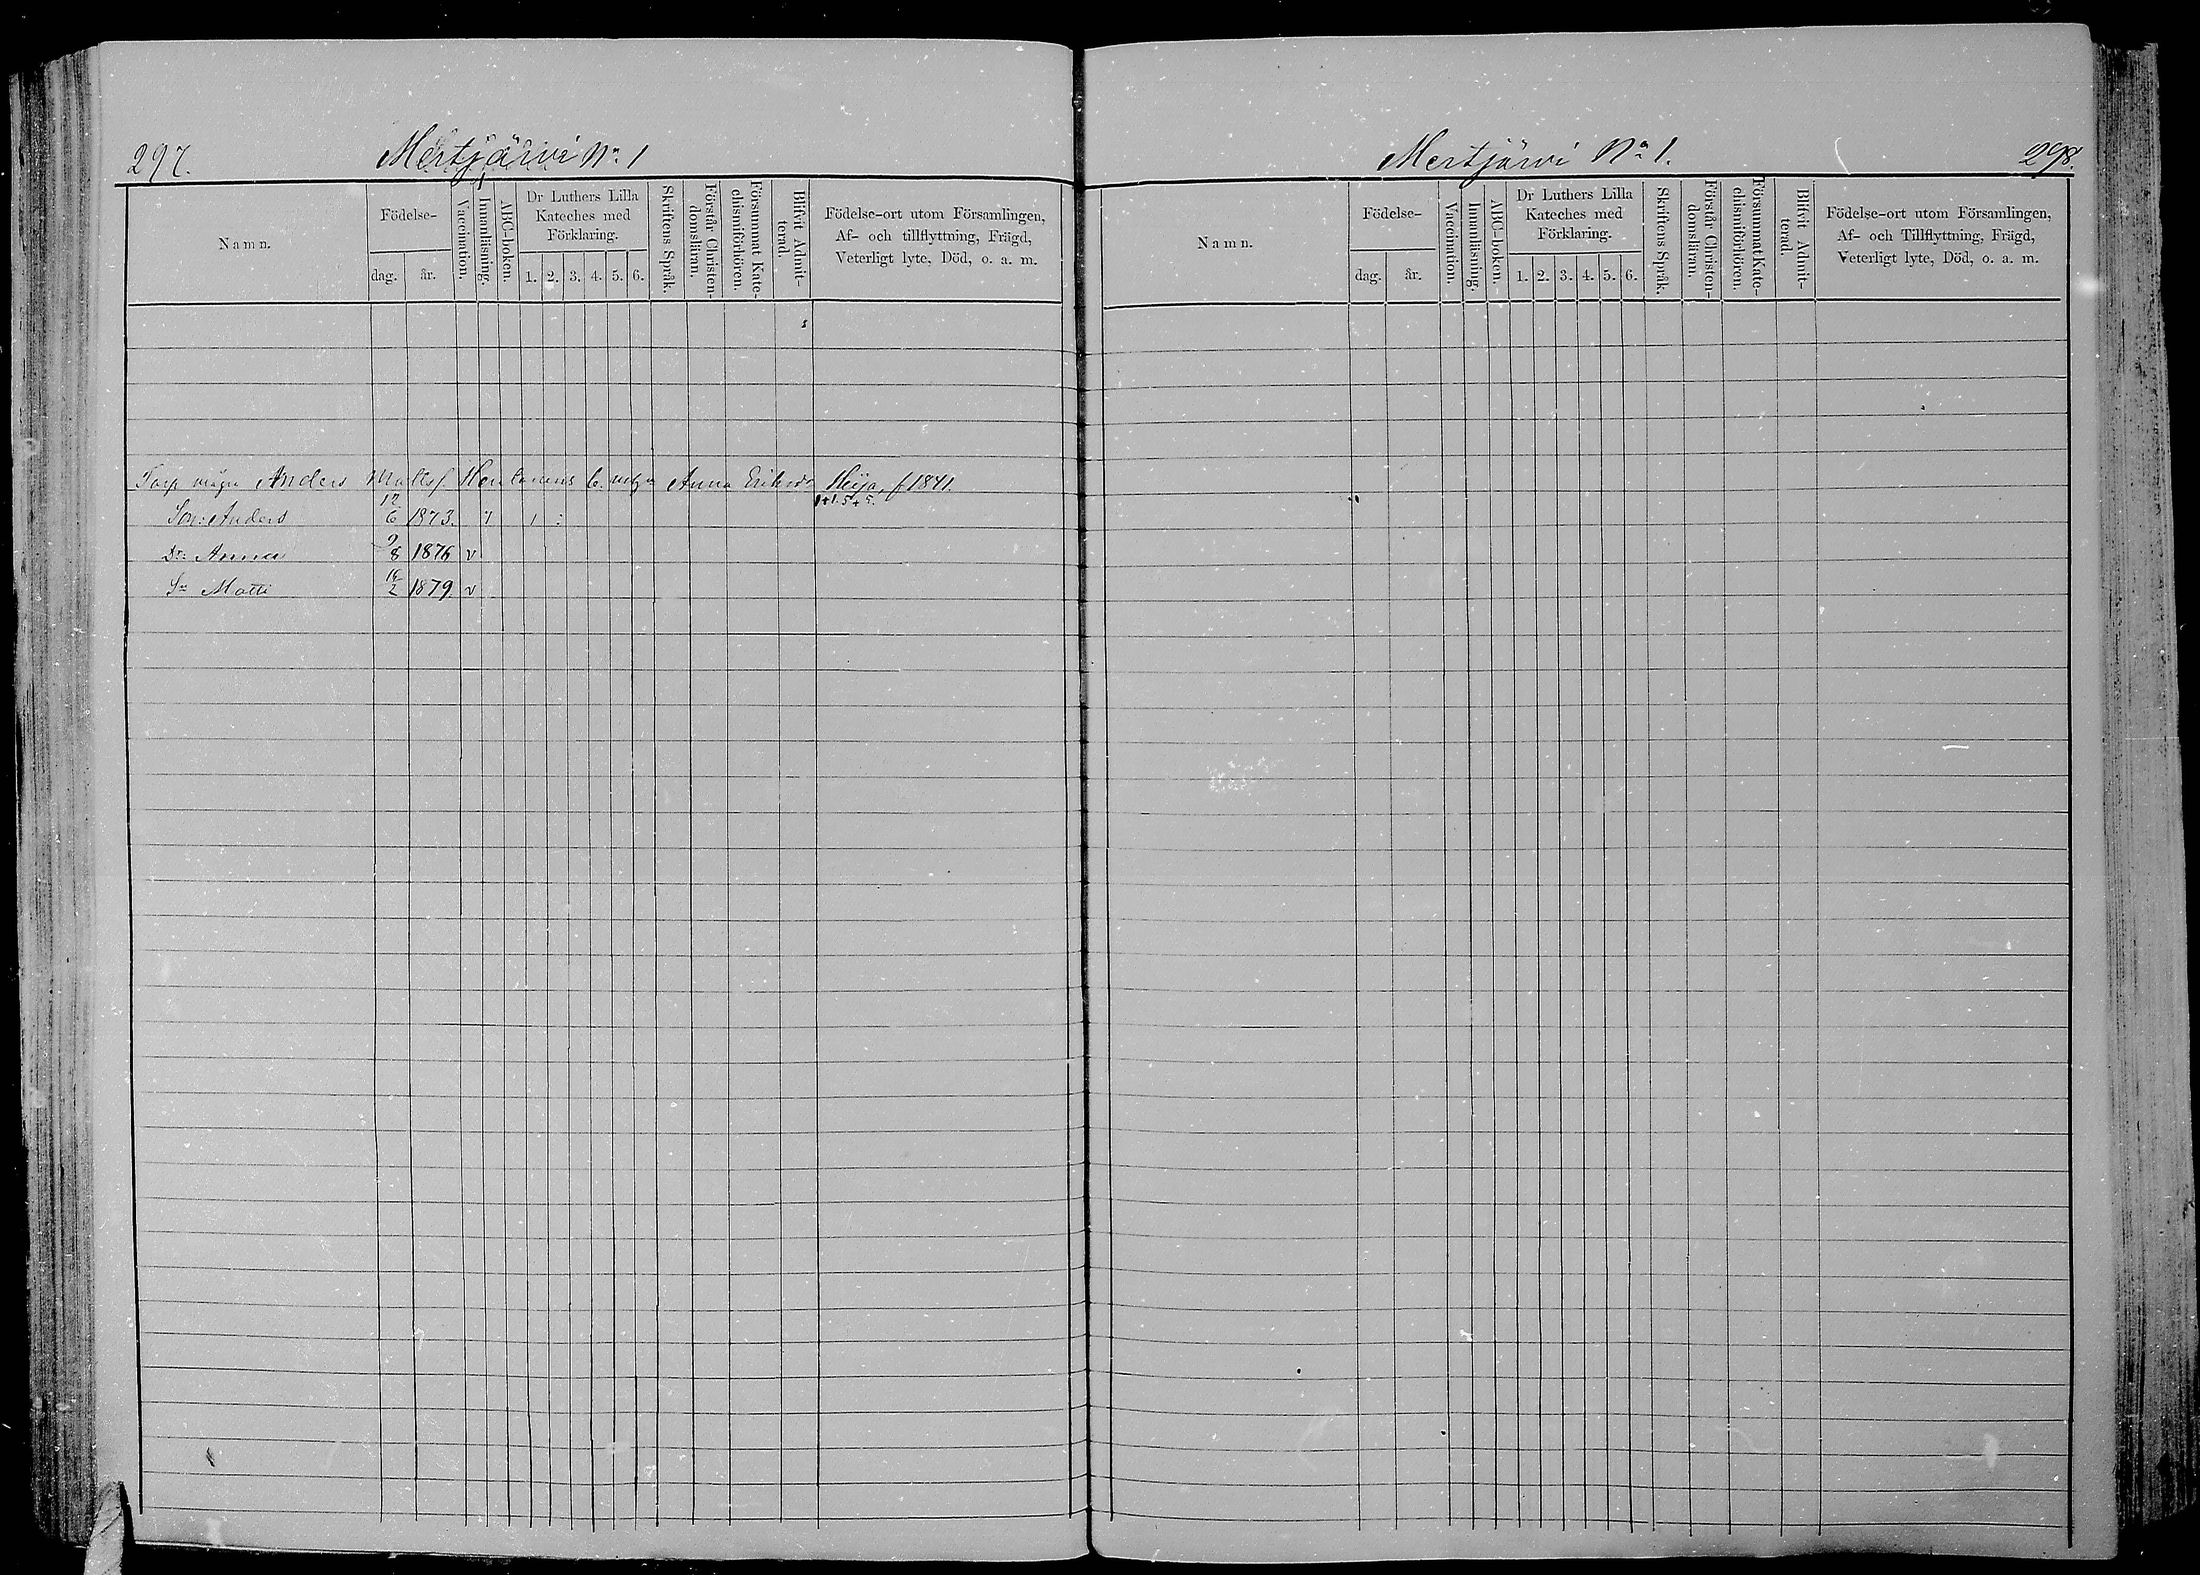 297.
Mertjärvi No 1
Namn.
Födelse-
dag.
år.
Vaccination.
Innanläsning.
ABC-boken.
Dr Luthers Lilla
Kateches med
Förklaring.
1. 2. 3. 4. 5. 6.
Skriftens Språk.
Förstår Christen-
domsläran.
Försummat Kate-
chismiförhören.
Blifvit Admit-
terad.
Födelse-ort utom Församlingen,
Af- och tillflyttning, Frägd,
Veterligt lyte, Död, o. a. m.
Anders Matts. Anna f 1841.
Son: Anders 17/6 1873.
Dr. Anna 9/8 1876 v
Sn Matti 16/2 1879. v
Mertjärvi No 1.
298.
Namn.
Födelse-
dag.
år.
Vaccination.
Innanläsning.
ABC-boken.
Dr Luthers Lilla
Kateches med
Förklaring.
1. 2. 3. 4. 5. 6.
Skriftens Språk.
Förstår Christen-
domsläran.
Försummat Kate-
chismiförhören.
Blifvit Admit-
terad.
Födelse-ort utom Församlingen,
Af- och Tillflyttning, Frägd,
Veterligt lyte, Död, o. a. m.